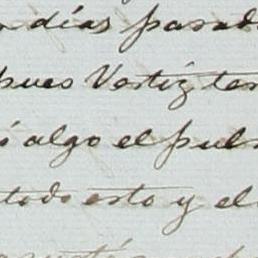 días pasad
pues Vertiz ten
ó algo el pul
todo esto y el